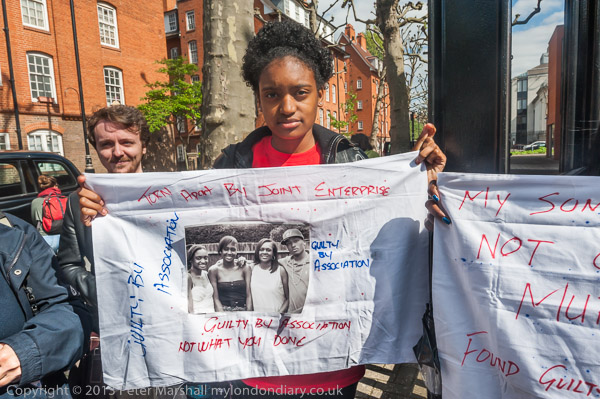 TORN APART BY JOINT ENTERPRISE
GUILTY BY
ASSOCIATION
GUILTY
BY
ASSOCIATION
GUILTY BY ASSOCIATION
NOT WHAT YOU DONE
MY SON
NOT
MU
FOUND GUILT
Copyright © 2013 Peter Marshall mylondondiary.co.uk